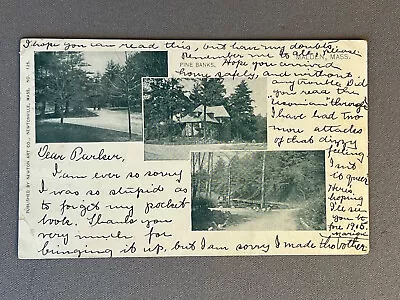 I hope you can read this, but have my doubts.
Remember me to all, please
PINE BANKS,
MALDEN, MASS.
PUBLISHED BY NEWTON ART CO., NEWTONVILLE, MASS. NO.
Dear Parker,
I am ever so sorry
I was so stupid as
to forget my pocket
book. Thank you
very much for
bringing it up, but I am sorry I made the bother.
Hope you arrived
home safely, and without
any trouble. Did
you read the
through?
I have had two
more attacks
of that dizzy
feeling.
Isn't it
queer
Here's
hoping
I'll see
you
be-
fore 1905.
Marion